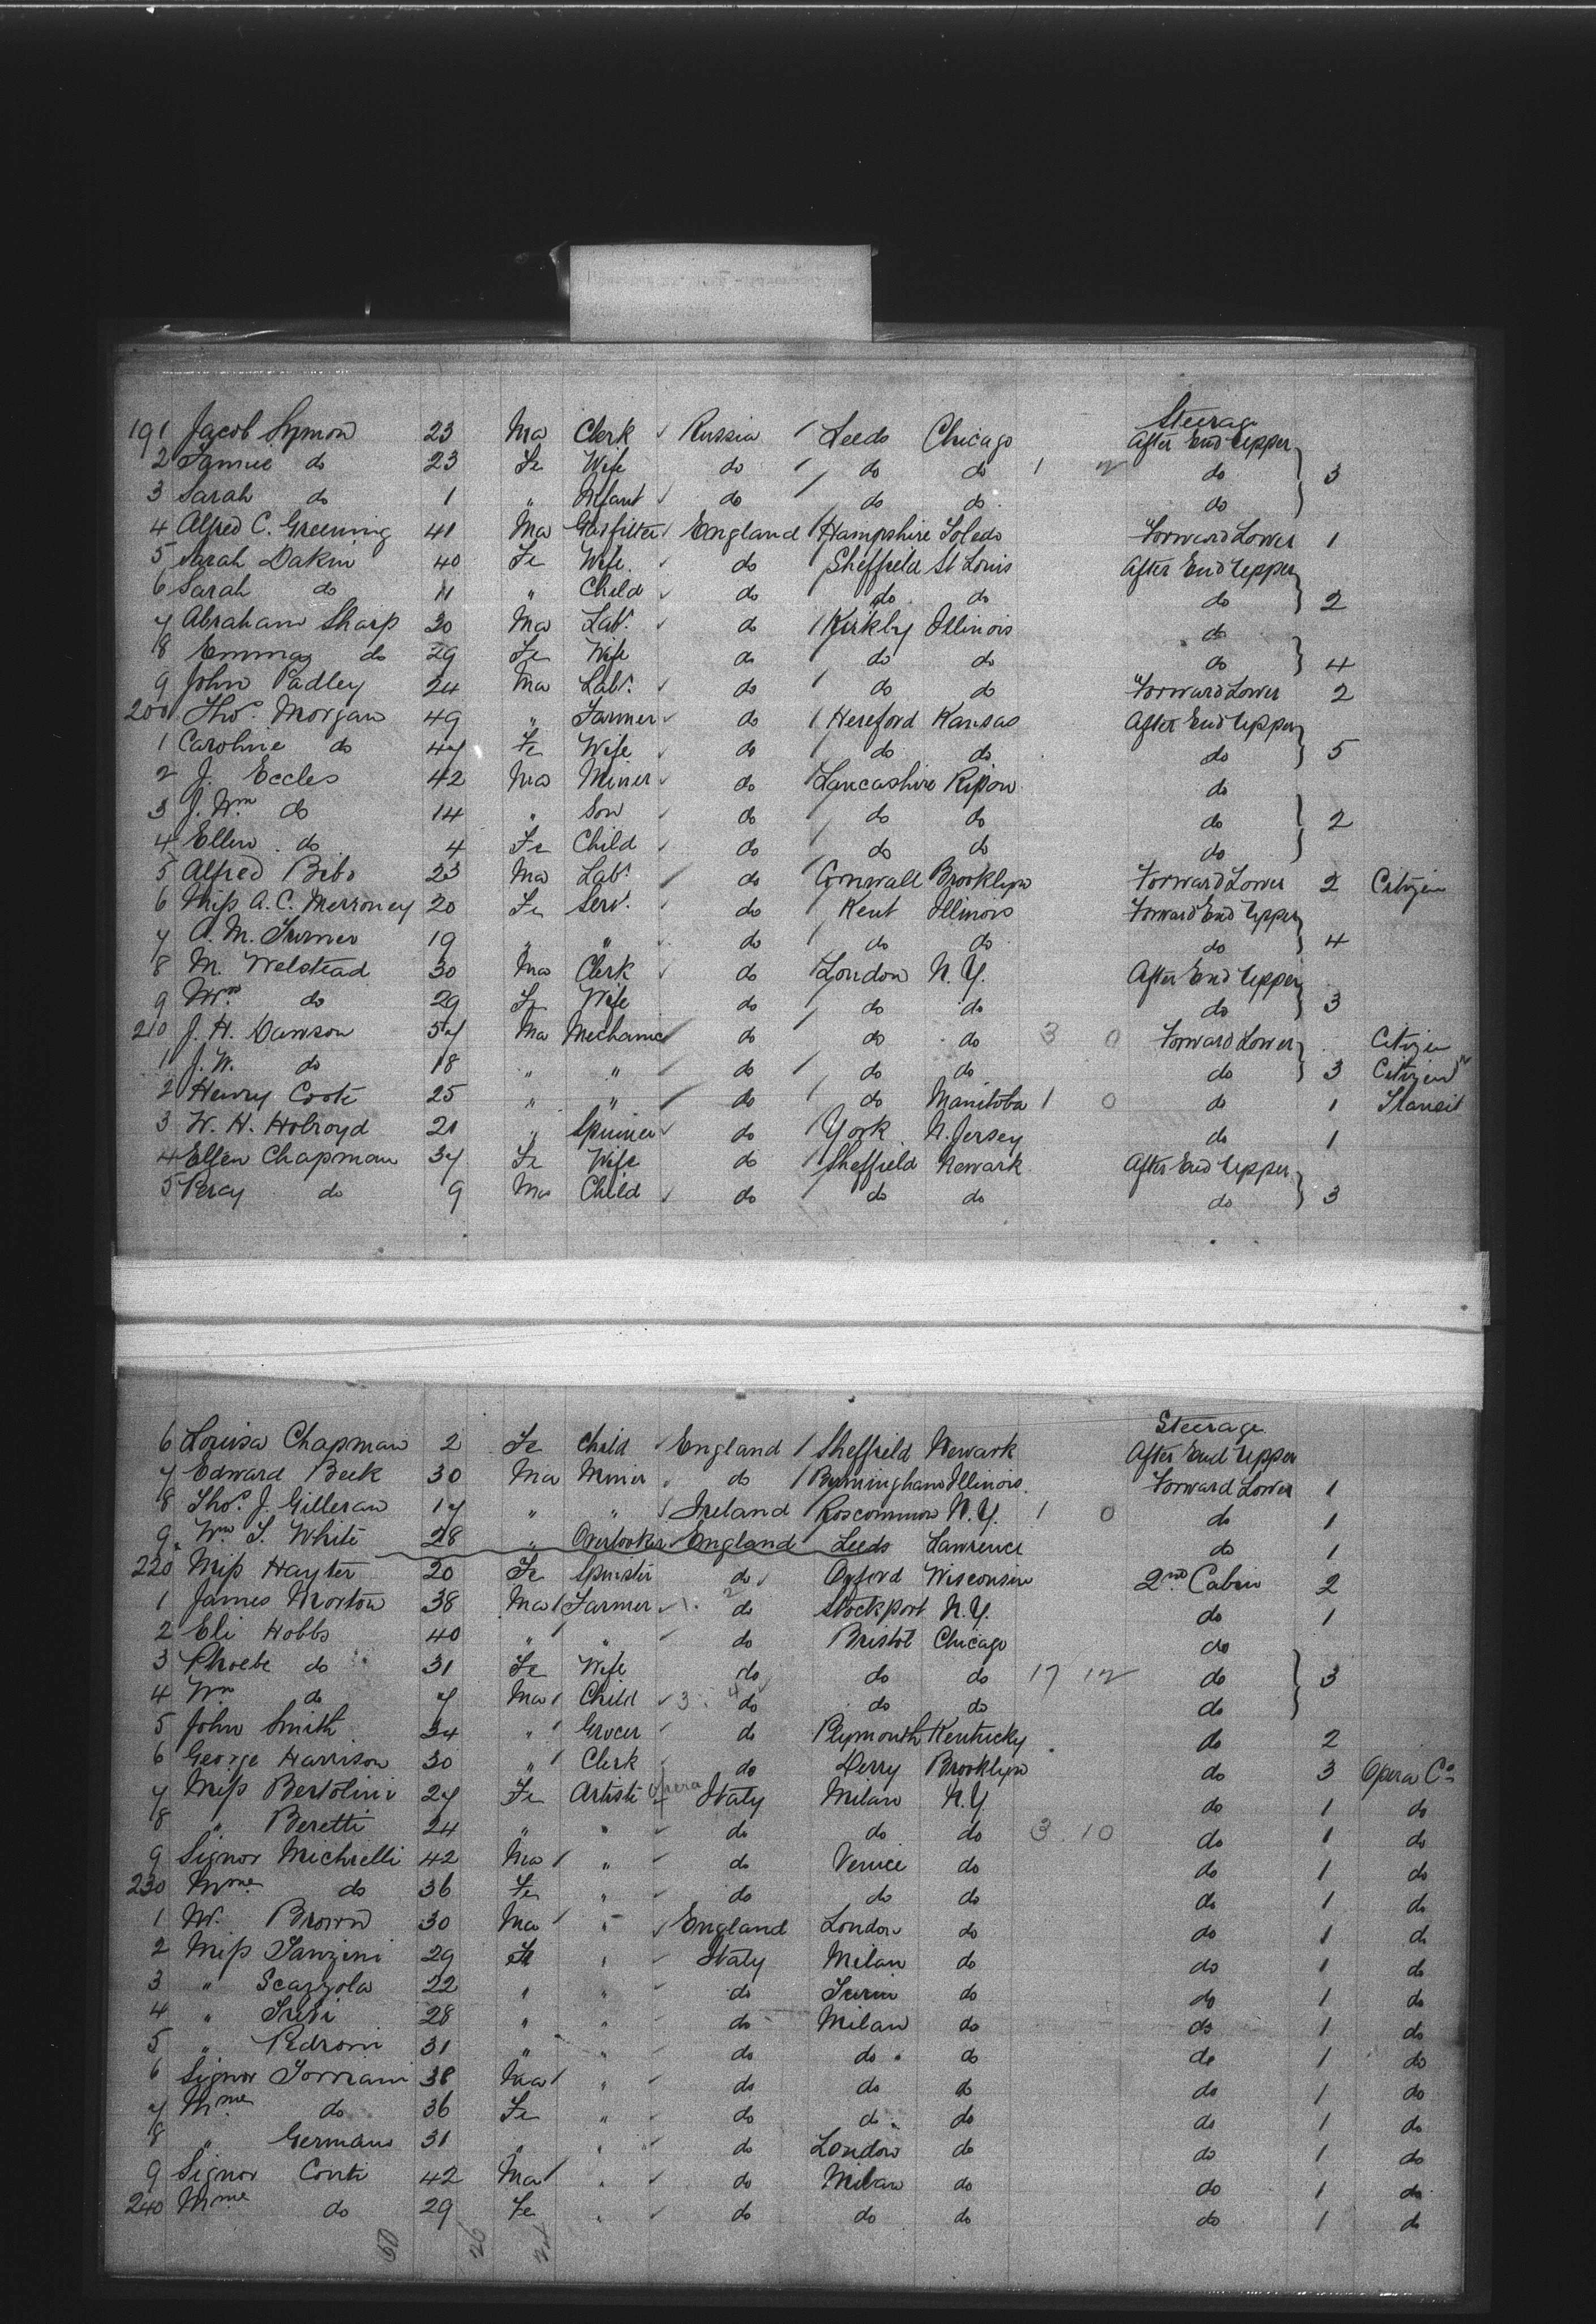 Steerage
191 Jacob Symon 23 Ma Clerk Russia Leeds Chicago After End Upper
2 do 23 Fe Wife do do do 1 do 3
3 Sarah do 1 " Infant do do do do
4 Alfred C. Greening 41 Ma Gasfitter England Hampshire Toledo Forward Lower 1
5 Sarah Dakin 40 Fe Wife do Sheffield St Louis After End Upper
6 Sarah do 11 " Child do do do do 2
7 Abraham Sharp 30 Ma Labr. do Kirkby Illinois do
8 Emma do 29 Fe Wife do do do do 4
9 John Padley 24 Ma Labr. do do do Forward Lower 2
200 Thos. Morgan 49 " Farmer do Hereford Kansas After End Upper
1 Caroline do 47 Fe Wife do do do do 5
2 J. Eccles 42 Ma Miner do Lancashire Ripon do
3 J. Wm do 14 " Son do do do do 2
4 Ellen do 4 Fe Child do do do do
5 Alfred Bibs 23 Ma Labr. do Cornwall Brooklyn Forward Lower 2 Citizen
6 Miss A. C. Merroney 20 Fe Serv. do Kent Illinois Forward End Upper
7 A. M. Turner 19 " " do do do do 4
8 M. Welstead 30 Ma Clerk do London N.Y. After End Upper
9 Mrs. do 29 Fe Wife do do do do 3
210 J. H. Dawson 57 Ma Mechanic do do do 3 0 Forward Lower Citizen
1 J. W. do 18 " " do do do do 3 Citizen
2 Henry Coote 25 " " do do Manitoba 1 0 do 1 Transit
3 W. H. Holroyd 21 " Spinner do York N. Jersey do 1
4 Ellen Chapman 37 Fe Wife do Sheffield Newark After End Upper
5 Percy do 9 Ma Child do do do do 3
Steerage
6 Louisa Chapman 2 Fe Child England Sheffield Newark After End Upper
7 Edward Beek 30 Ma Miner do Birmingham Illinois Forward Lower 1
8 Thos. J. Gilleran 17 " " Ireland Roscommon N.Y. 1 0 do 1
9 Wm T. White 28 " Overlooker England Leeds Lawrence do 1
220 Miss Hayter 20 Fe Spinster do Oxford Wisconsin 2nd Cabin 2
1 James Morton 38 Ma Farmer 1. 2 do Stockport N.Y. do 1
2 Eli Hobbs 40 " " do Bristol Chicago do
3 Phoebe do 31 Fe Wife do do do 17 12 do 3
4 Wm do 7 Ma Child 3. 4 do do do do
5 John Smith 34 " Grocer do Plymouth Kentucky do 2
6 George Harrison 30 " Clerk do Derry Brooklyn do 3 Opera Co.
7 Miss Bertolini 27 Fe Artiste Opera Italy Milan N.Y. do 1 do
8 " Beretti 24 " " do do do 3 10 do 1 do
9 Signor Michielli 42 Ma " do Venice do do 1 do
230 Mme do 36 Fe " do do do do 1 do
1 W. Brown 30 Ma " England London do do 1 do
2 Miss Tanzini 29 Fe " Italy Milan do do 1 do
3 " Scazzola 22 " " do Turin do do 1 do
4 " 28 " " do Milan do do 1 do
5 " Pedroni 31 " " do do do do 1 do
6 Signor Torriani 38 Ma " do do do do 1 do
7 Mme do 36 Fe " do do do do 1 do
8 " Germano 31 " " do London do do 1 do
9 Signor Conti 42 Ma " do Milan do do 1 do
240 Mme do 29 Fe " do do do do 1 do
60 26